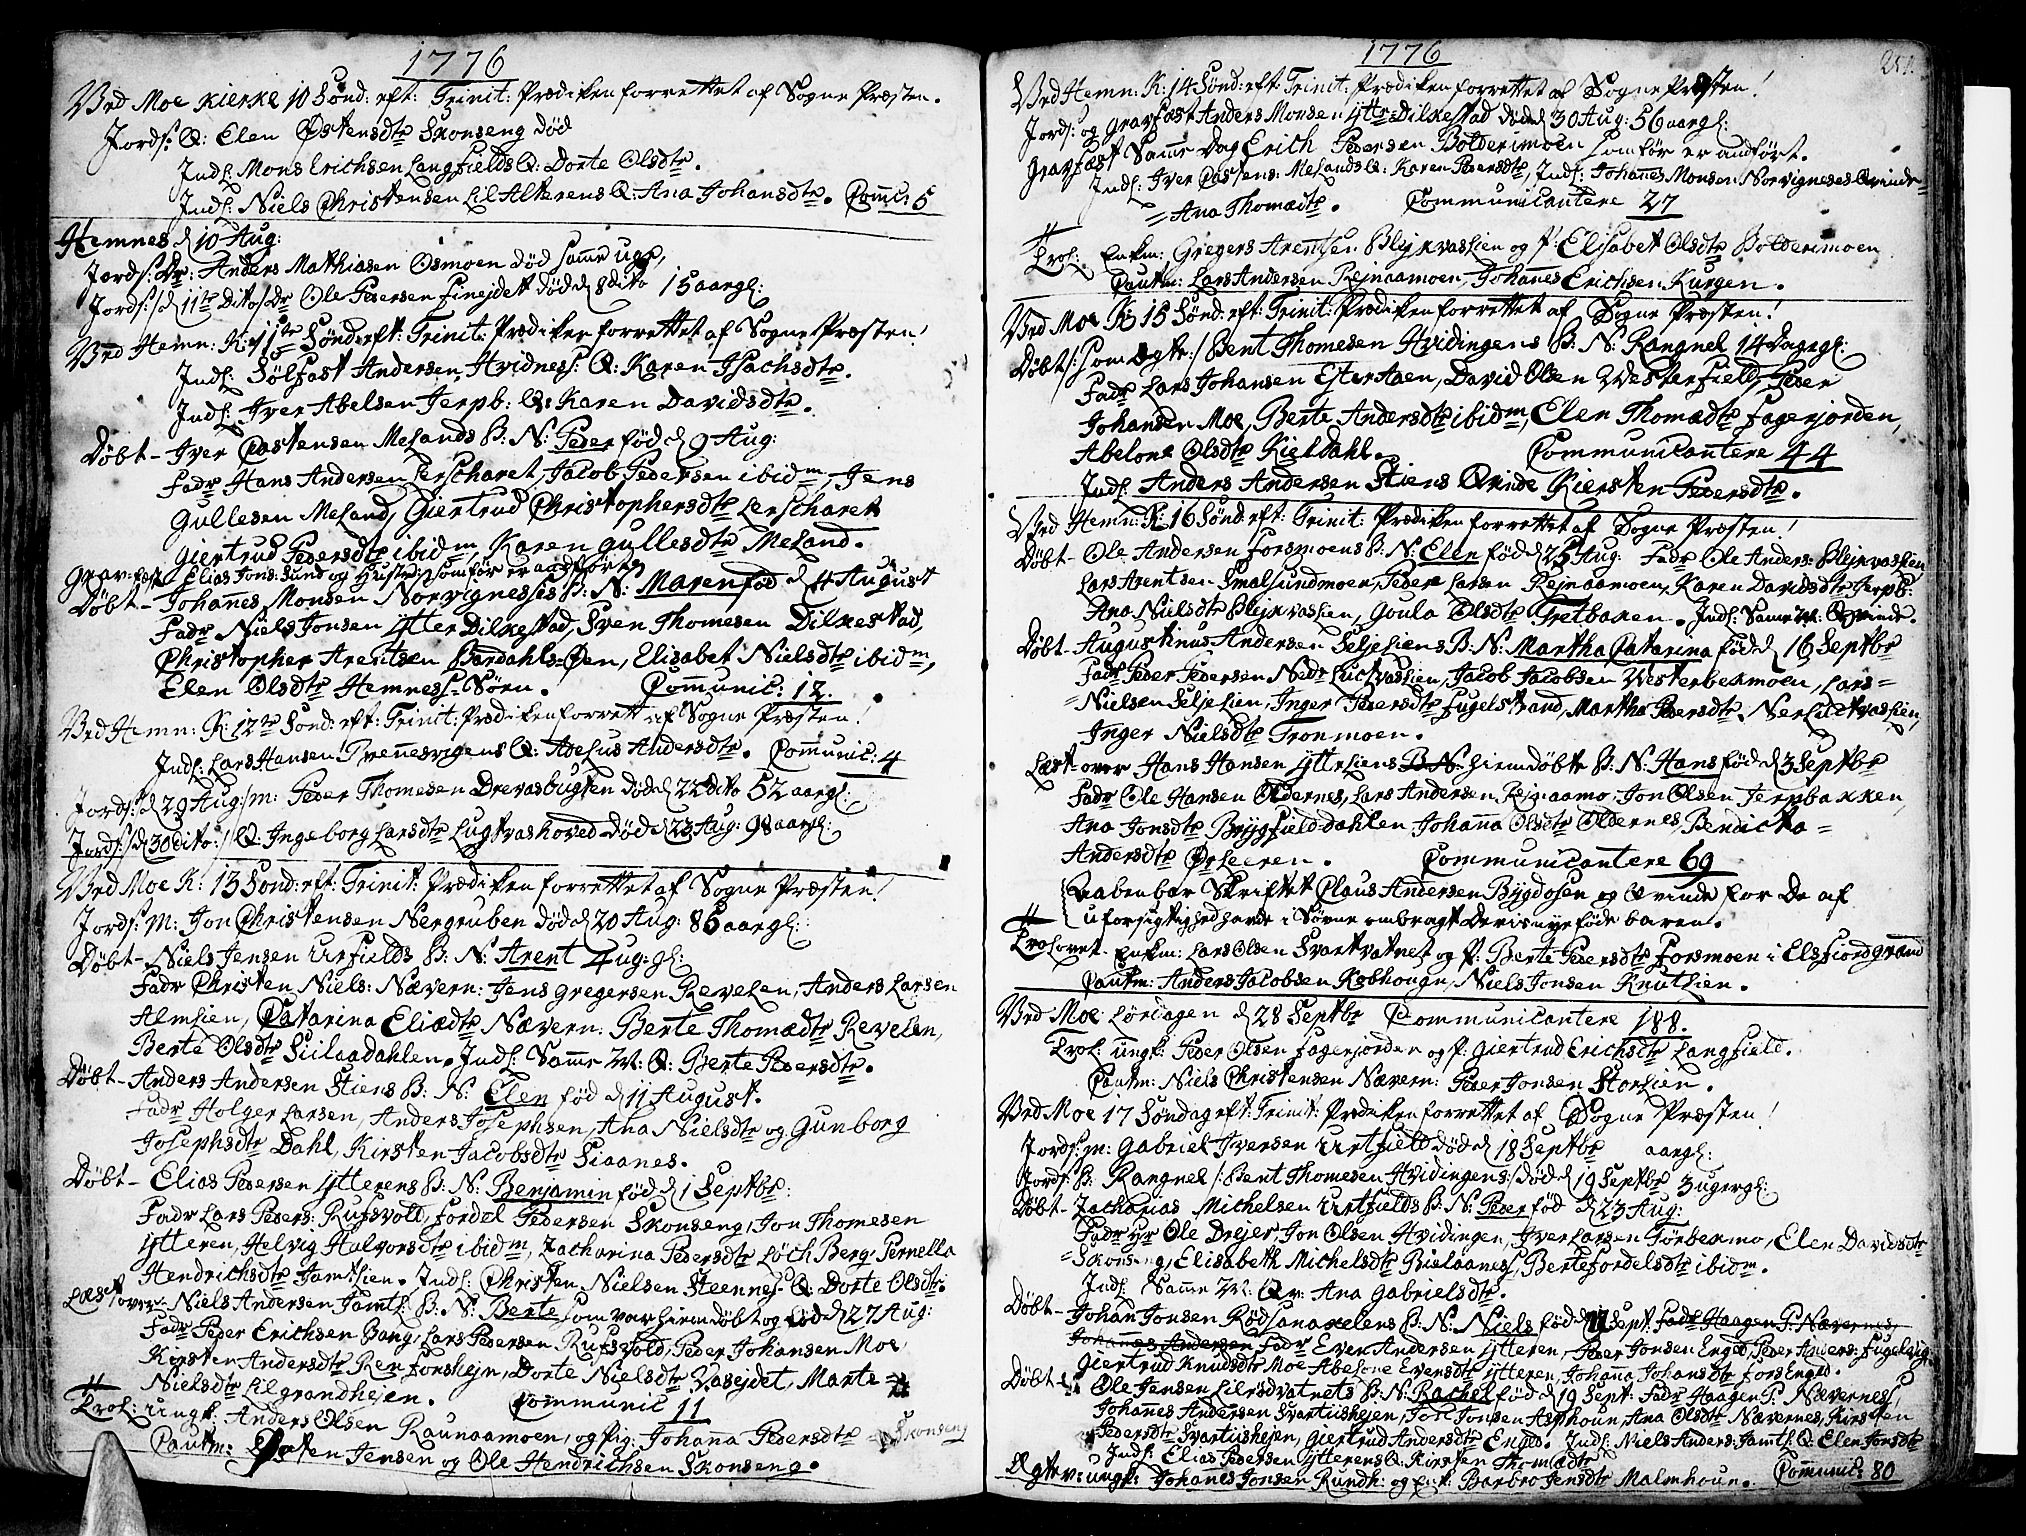 1776
Ved Moe Kierke 10 Sønd: eft: Trinit: Prædiken forrettet af Sogne Præsten.
Jords: Q: Elen Østensdtr Skonseng død
Indl: Mons Erichsen Langfields Q: Dorte Olsdtr.
Indl: Niels Christensen Lil Alterens Q: Ana Johansdtr. Comc: 5
Hemnes d 10 Aug:
Jords: Dr: Anders Mathiasen Osmoen død samme uge,
Jords: d 11te Dito Dr Ole Pedersen Finejdet død d 8 dito 15 aargl:
Ved Hemn: K: 11te Sønd: eft: Trinit: Prædiken forrettet af Sogne Præsten!
Indl: Sølfast Andersen Hvidnes: Q: Karen Isachsdtr.
Indl: Iver Abelsen Jerpb: Q: Karen Davidsdtr.
Døbt - Iver Castensen Melands B: N: Peder fød d 9 Aug:
Fadr Hans Andersen Lerscharet, Jacob Pedersen ibidm, Jens
Gullesen Meland, Giertrud Christophersdtr Lerscharet
Giertrud Pedersdtr ibidm, Karen Gullesdtr Meland.
Grav:fæst Elias Jons: Sund og Hustr: som før er andført
Døbt - Johanes Monsen Norvignesses B: N: Maren fød d 4 August
Fadr Niels Jonsen Ytter Dilkestad, Sven Thomesen Dilkestad,
Christopher Arentsen Bardahls-Øen, Elisabet Nielsdtr ibidm,
Elen Olsdtr Hemness-Sørn. Communic: 12.
Ved Hemn: K: 12te Sønd: eft: Trinit: Prædiken forrett af Sogne Præsten!
Indl: Lars Hansen Prennesvigens Q: Adelus Andersdtr. Comunic: 4
Jords: d 29 Aug: m: Peder Thomesen Drevasbugten død d 22 dito 52 aargl:
Jords: d 30 dito: Q: Ingeborg Larsdtr Lugtvashoved død d 23 Aug: 98 aargl:
Ved Moe K: 13 Sønd: eft: Trinit: Prædiken forrettet af Sogne Præsten!
Jords: m: Jon Christensen Nergruben død d 20 Aug: 86 aargl:
Døbt - Niels Jensen Urfields B: N: Arent 4 ug: gl:
Fadr Christen Niels: Nævern: Jens Gregersen Revelen, Anders Larsen
Almlien, Catarina Eliædtr Nævern: Berte Thomædtr Revelen,
Berte Olsdtr Siilaadahlen. Indl: Samme M: Q: Berte Pedersdtr.
Døbt - Anders Andersen Stiens B: N: Elen fød d 11 August.
Fadr Holger Larsen, Anders Josephsen, Ana Nielsdtr og Gunborg
Josephsdtr Dahl, Kirsten Jacobsdtr Siaanes.
Døbt - Elias Pedersen Ytterens B: N: Benjamin fød d 1 Septbr:
Fadr Lars Peders: Rufsvold, Fordel Pedersen Skonseng, Jon Thomesen
Ytteren, Helvig Halvorsdtr ibidm, Zacharina Pedersdtr Løch Berg, Pernella
Hendrichsdtr Jamtlien. Indl: Christen Nielsen Steenness Q: Dorte Olsdtr.
Læst over - Niels Andersen Jamtl: B: N: Berte som var hiemdøbt og fød d 27 Aug:
Fadr Peder Erichsen Bang, Lars Pedersen Rufsvold, Peder Johansen Moe,
Kirsten Andersdtr Renforshejn, Dorte Nielsdtr Vasejdet, Marte
Nielsdtr Lilgrandhejen. Communic 11.
Trol: ungk: Anders Olsen Raunaamoen, og pig: Johana Pedersdtr Skonseng
Cautm: Østen Jensen og Ole Hendrichsen Skonseng.
1776
251.
Ved Hemn: K: 14 Sønd: eft: Trinit: Prædiken forrettet af Sogne Præsten!
Jords: og Gravfæst Anders Monsen Yttr: Dilkestad død d 30 Aug: 56 aargl:
Gravfæst Samme Dag Erich Pedersen Bolderimoen som før er andført.
Indl: Iver Castens: Melands Q: Karen Pedersdtr, Indl: Johanes Monsen Norvigneses Qvinde
= Ana Thomædtr. Communicantere 27
Trol: Enkm: Gregers Arentsen Blejkvaslien og P: Elisabet Olsdtr Bolderimoen
Cautm: Lars Andersen Rejnaamoen, Johanes Erichsen Kurgen.
Ved Moe K: 15 Sønd: eft: Trinit: Prædiken forrettet af Sogne Præsten!
Døbt /: som Ægte: / Bent Thomesen Hvidingens B: N: Rangnel 14 Dagegl:
Fadr Lars Johansen Ester Aaen, David Olsen Westerfield, Peder
Johansen Moe, Berte Andersdtr ibidm, Elen Thomædtr Fagerjorden,
Abelone Olsdtr Kieldahl. Communicantere 44
Indl: Anders Andersen Stiens Qvinde Kiersten Pedersdtr.
Ved Hemn: K: 16 Sønd: eft: Trinit: Prædiken forrettet af Sogne Præsten!
Døbt - Ole Andersen Forsmoens B: N: Elen fød d 25 Aug: Fadr Ole Anders: Blejkvaslien
Lars Arentsen Smalsundmoen, Peder Larsen Rejnaamoen, Karen Davidsdtr Jerpb:
Ana Nielsdtr Blejkvaslien, Goula Olsdtr Tretbaken. Indl: Samme M: Qvinde.
Døbt - Augustinus Andersen Seljeliens B: N: Martha Catarina fød d 16 Septbr
Fadr Peder Pedersen Nedr Luctvaslien, Jacob Jacobsen Westerbekmoen, Lars =
= Nielsen Seljelien, Inger Pedersdtr Fugelstrand, Martha Pedersdtr Nerluktvaslien,
Inger Nielsdtr Tronmoen.
Læst over Hans Hansen Ytterliens B: N: hiemdøbte B: N: Hans fød d 3 Septbr
Fadr Ole Hansen Oldernes, Lars Andersen Rejnaamo, Jon Olsen Jerpbakken,
Ana Jonsdtr Brygfielddahlen, Johana Olsdtr Oldernes, Bendicta =
Andersdtr Ørleeren. Communicantere 69
Aabenbar Skriftet Claus Andersen Bygdosen og Qvinde for De af
uforsigtighed havde i Søvne ombragt Deris nyeføde baren.
Trolovet Enkm: Lars Olsen Svartvatnet og P: Berte Pedersdtr Forsmoen i Elsfiordgrand
Cautm: Anders Jacobsen Kobhougn, Niels Jonsen Knutlien.
Ved Moe Lørdagen d 28 Septbr Communicantere 188.
Trol: ungk: Peder Olsen Fagerjorden og P: Giertrud Erichsdtr Langfield.
Cautm: Niels Christensen Nævern: Peder Jonsen Storlien.
Ved Moe 17 Søndag eft: Trinit: Prædiken forrettet af Sogne Præsten!
Jords: m: Gabriel Iversen Urtfield død d 18 Septbr aargl:
Jords: B: Rangnel /: Bent Thomesen Hvidingens: / død d 19 Septbr 3 ugergl:
Døbt - Zacharias Michelsen Urtfields B: N: Peder fød d 23 Aug:
Fadr Hr Ole Drejer, Jon Olsen Hvidingen, Iver Larsen Torbekmo, Elen Davidsdtr
= Skonseng, Elisabeth Michelsdtr Bielaanes, Berte Fordelsdtr ibidm.
Indl: Samme M: Qv: Ana Gabrielsdtr.
Døbt - Johan Jonsen Rødsanaxelens B: N: Niels fød d 11 Sept: Fadr Haagen P: Nævernes,
Johannes Andersen Fadr Even Andersen Ytteren, Peder Jonsen Enged, Peder Anders: Fugelvig,
Giertrud Knudsdtr Moe, Abelone Evensdtr Ytteren, Johana Johansdtr Fors Enged.
Døbt - Ole Jensen Lilrødvatnets B: N: Rachel fød d 19 Sept: Fadr Haagen P: Nævernes,
Johanes Andersen Svartiishejen, Jon Jonsen Asphoun, Ana Olsdtr Nævernes, Kirsten
Pedersdtr Svartiishejen, Giertrud Andersdtr Enged. Indl: Niels Anders: Jamtl: Q: Elen Jonsdtr
Indl: Elias Pedersen Ytterens Q: Kirsten Thomædtr
Ægtev: ungk: Johanes Jonsen Rundh: og Enk: Barbro Jensdtr Malmhoun. Comunic: 80